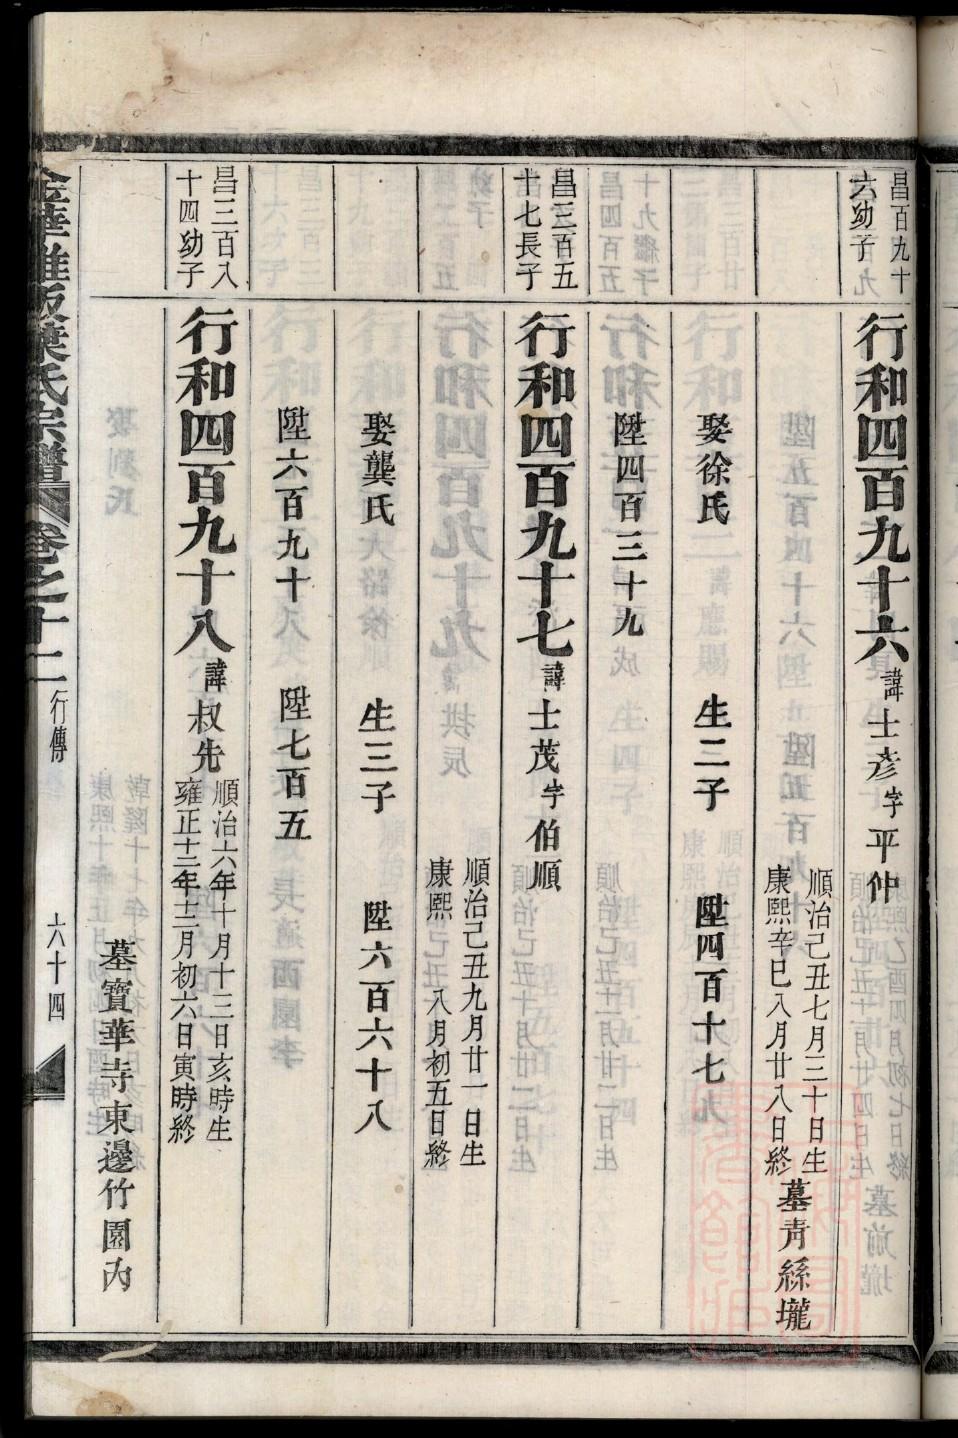 昌百九十
六幼子
行和四百九十六諱士彥字平仲
順治己丑七月三十日生
康熙辛巳八月廿八日終
墓青絲壠
娶徐氏 生二子 陞四百十七
陞四百三十九
昌三百五
十七長子
行和四百九十七諱士茂字伯順
順治己丑九月廿一日生
康熙 八月初五日終
娶龔氏 生三子 陞六百六十八
陞六百九十 陞七百五
昌三百八
十四幼子
行和四百九十八諱叔先
順治六年十月十三日亥時生
雍正十二年十二月初六日寅時終
墓寶華寺東邊竹園內
葉氏宗譜 卷之十二 行傳 六十四